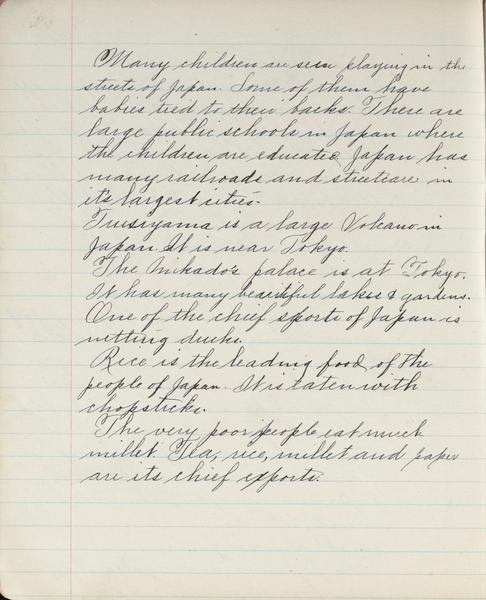 Many children are seen playing in the
streets of Japan. Some of them have
babies tied to their backs. There are
large public schools in Japan where
the children are educated. Japan has
many railroads and streetcars in
it's largest cities.
Fusiyama is a large Volcano in
Japan. It is near Tokyo.
The Mikado's palace is at Tokyo.
It has many beautiful lakes & gardens.
One of the chief sports of Japan is
netting ducks.
Rice is the leading food of the
people of Japan. It is eaten with
chopsticks.
The very poor people eat much
millet. Tea, rice, millet and paper
are its chief exports.